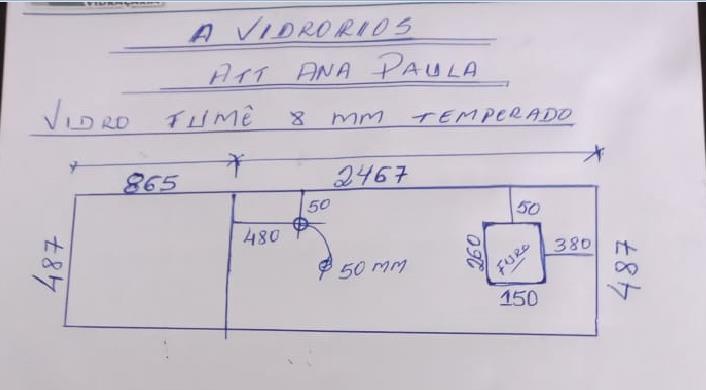 VIDRAÇARIA
A VIDRORIOS
ATT ANA PAULA
VIDRO FUMÊ 8 MM TEMPERADO
865 2467
50 50
480 260 FURO 380
487 487
Ø 50 MM
150